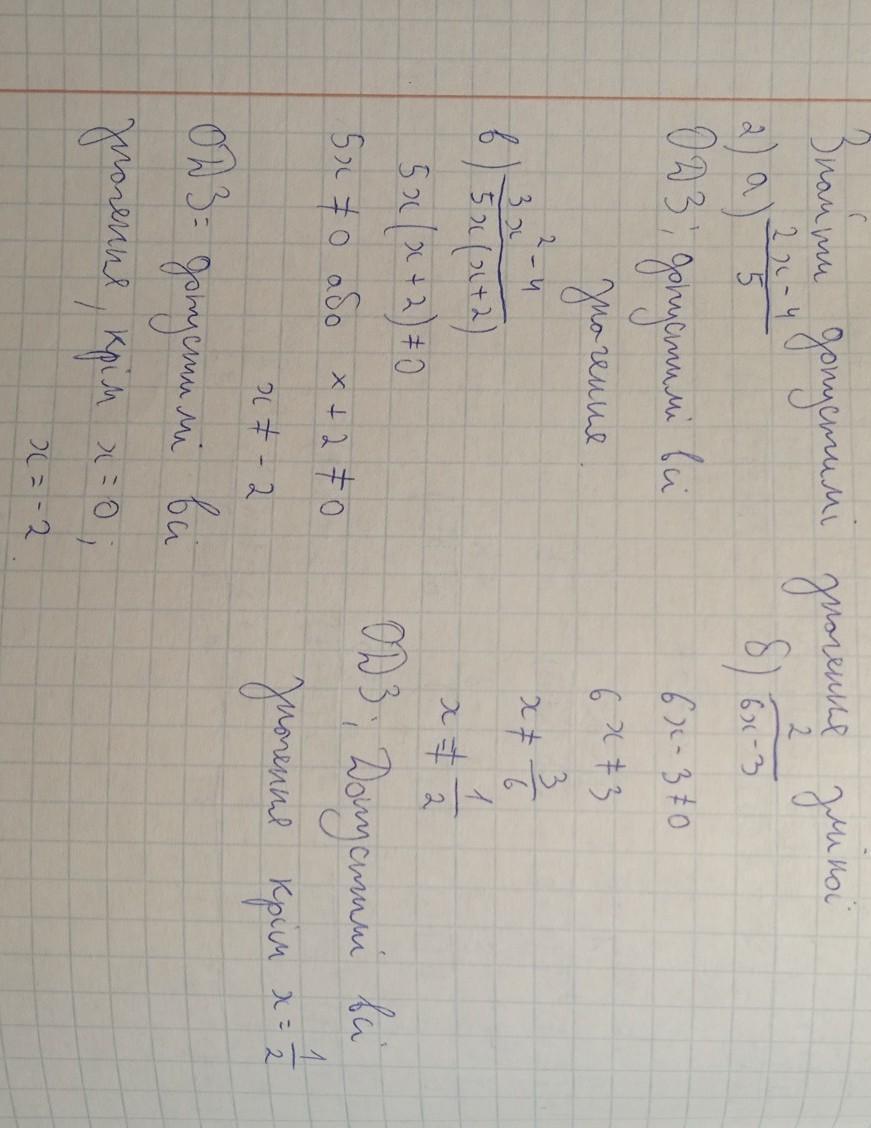 Знайти допустимі значення змінної
2) а) 2x-4/5
ОДЗ; допустимі всі
значення.
в) 3x²-4/5x(x+2)
5x(x+2)≠0
5x≠0 або x+2≠0
x≠-2
ОДЗ: допустимі всі
значення, крім x=0;
x=-2.
б) 2/6x-3
6x-3≠0
6x≠3
x≠3/6
x≠1/2
ОДЗ; Допустимі всі
значення крім x=1/2